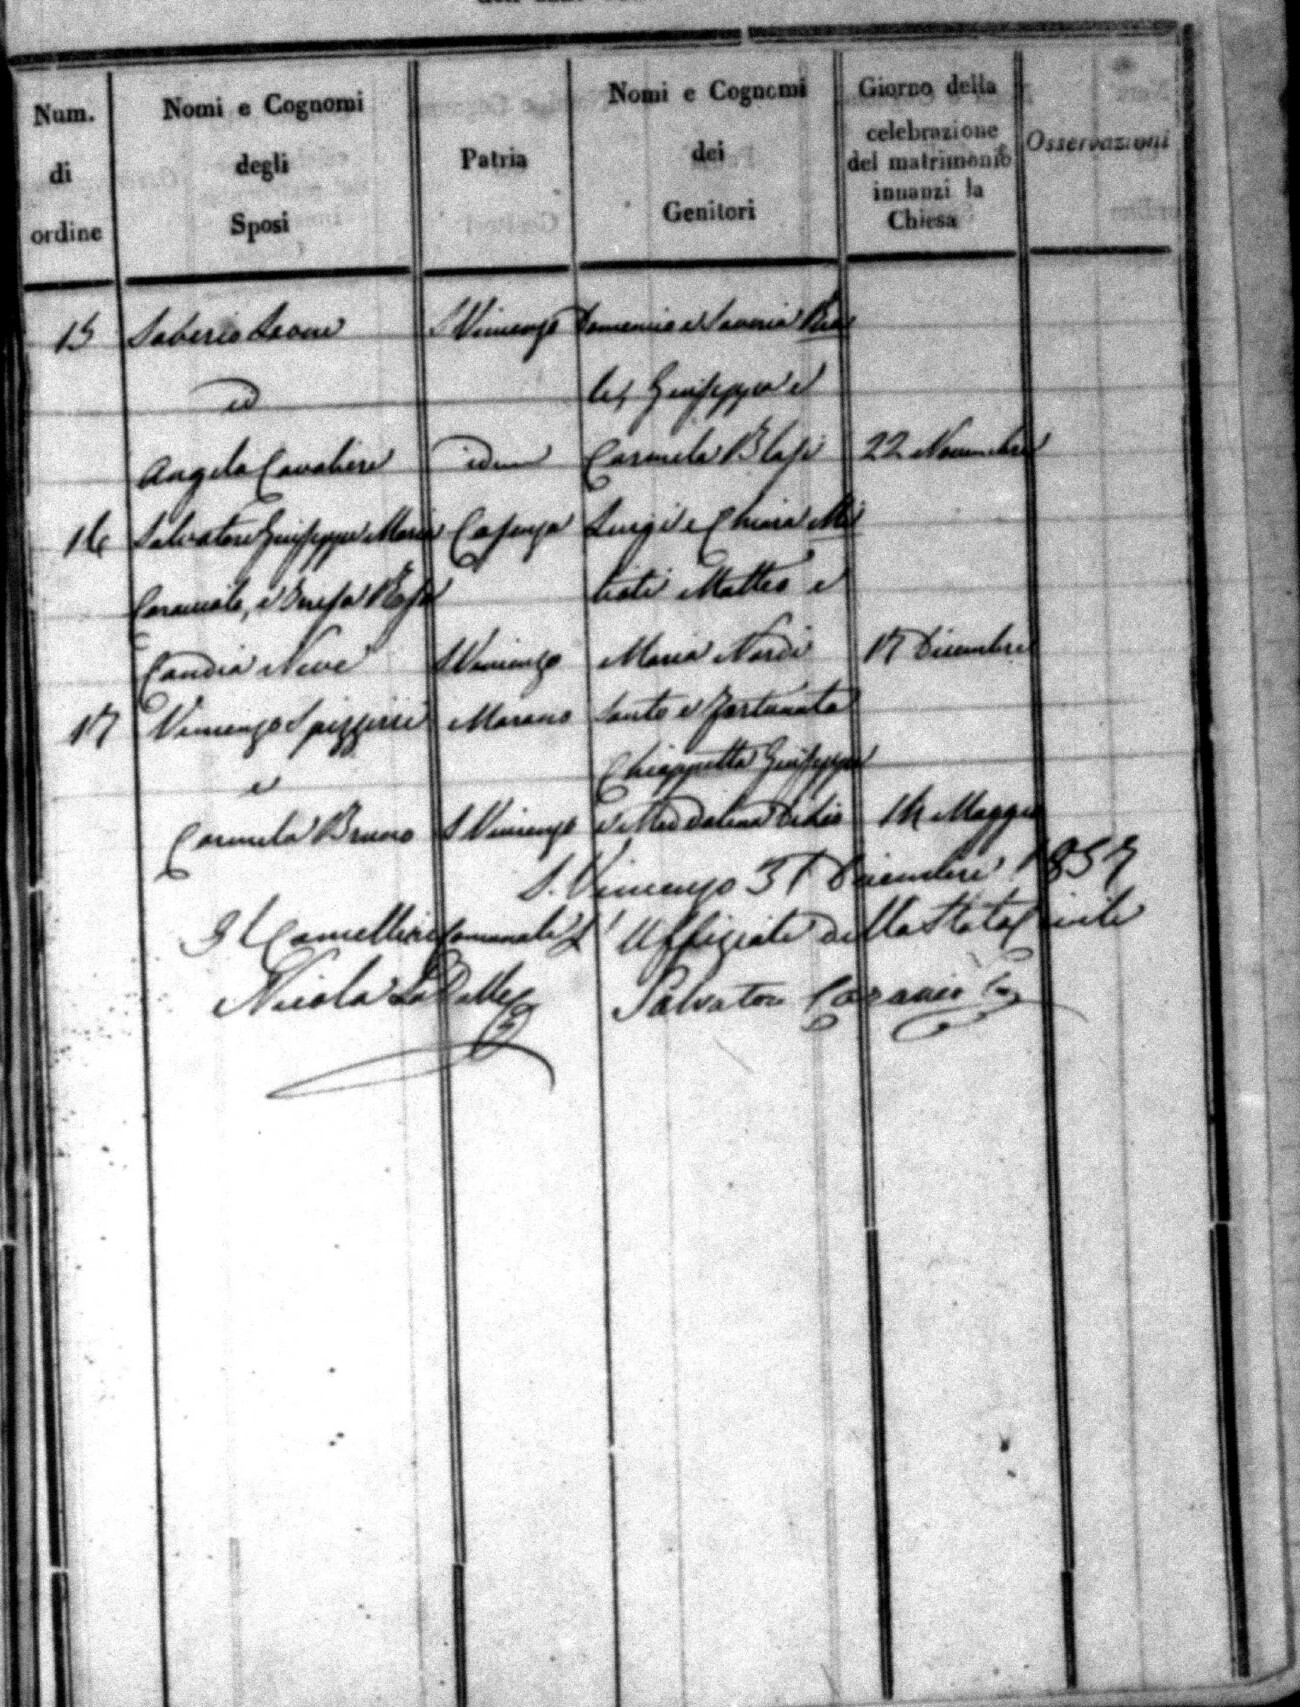 Num.
di
ordine
Nomi e Cognomi
degli
Sposi
Patria
Nomi e Cognomi
dei
Genitori
Giorno della
celebrazione
del matrimonio
innanzi la
Chiesa
Osservazioni
15 Saberio Leone S. Vincenzo Domenico e Saveria
ed Giuseppe e
Angela Cavaliere idem Carmela Blasi 22 Novembre
16 Salvatore Giuseppe Maria Cosenza Luigi e Chiara Mi
Caracciolo, e Teresa Rosa liati Matteo e
Candia Neve S. Vincenzo Maria Nardi 17 Dicembre
17 Vincenzo Spizzirri Marano Santo e Fortunata
e Chiappetta Giuseppe
Carmela Bruno S. Vincenzo e Maddalena 14 Maggio
S. Vincenzo 31 Dicembre
Il Cancelliere Comunale L'Uffiziale dello Stato Civile
Nicola Salvatore Caracciolo